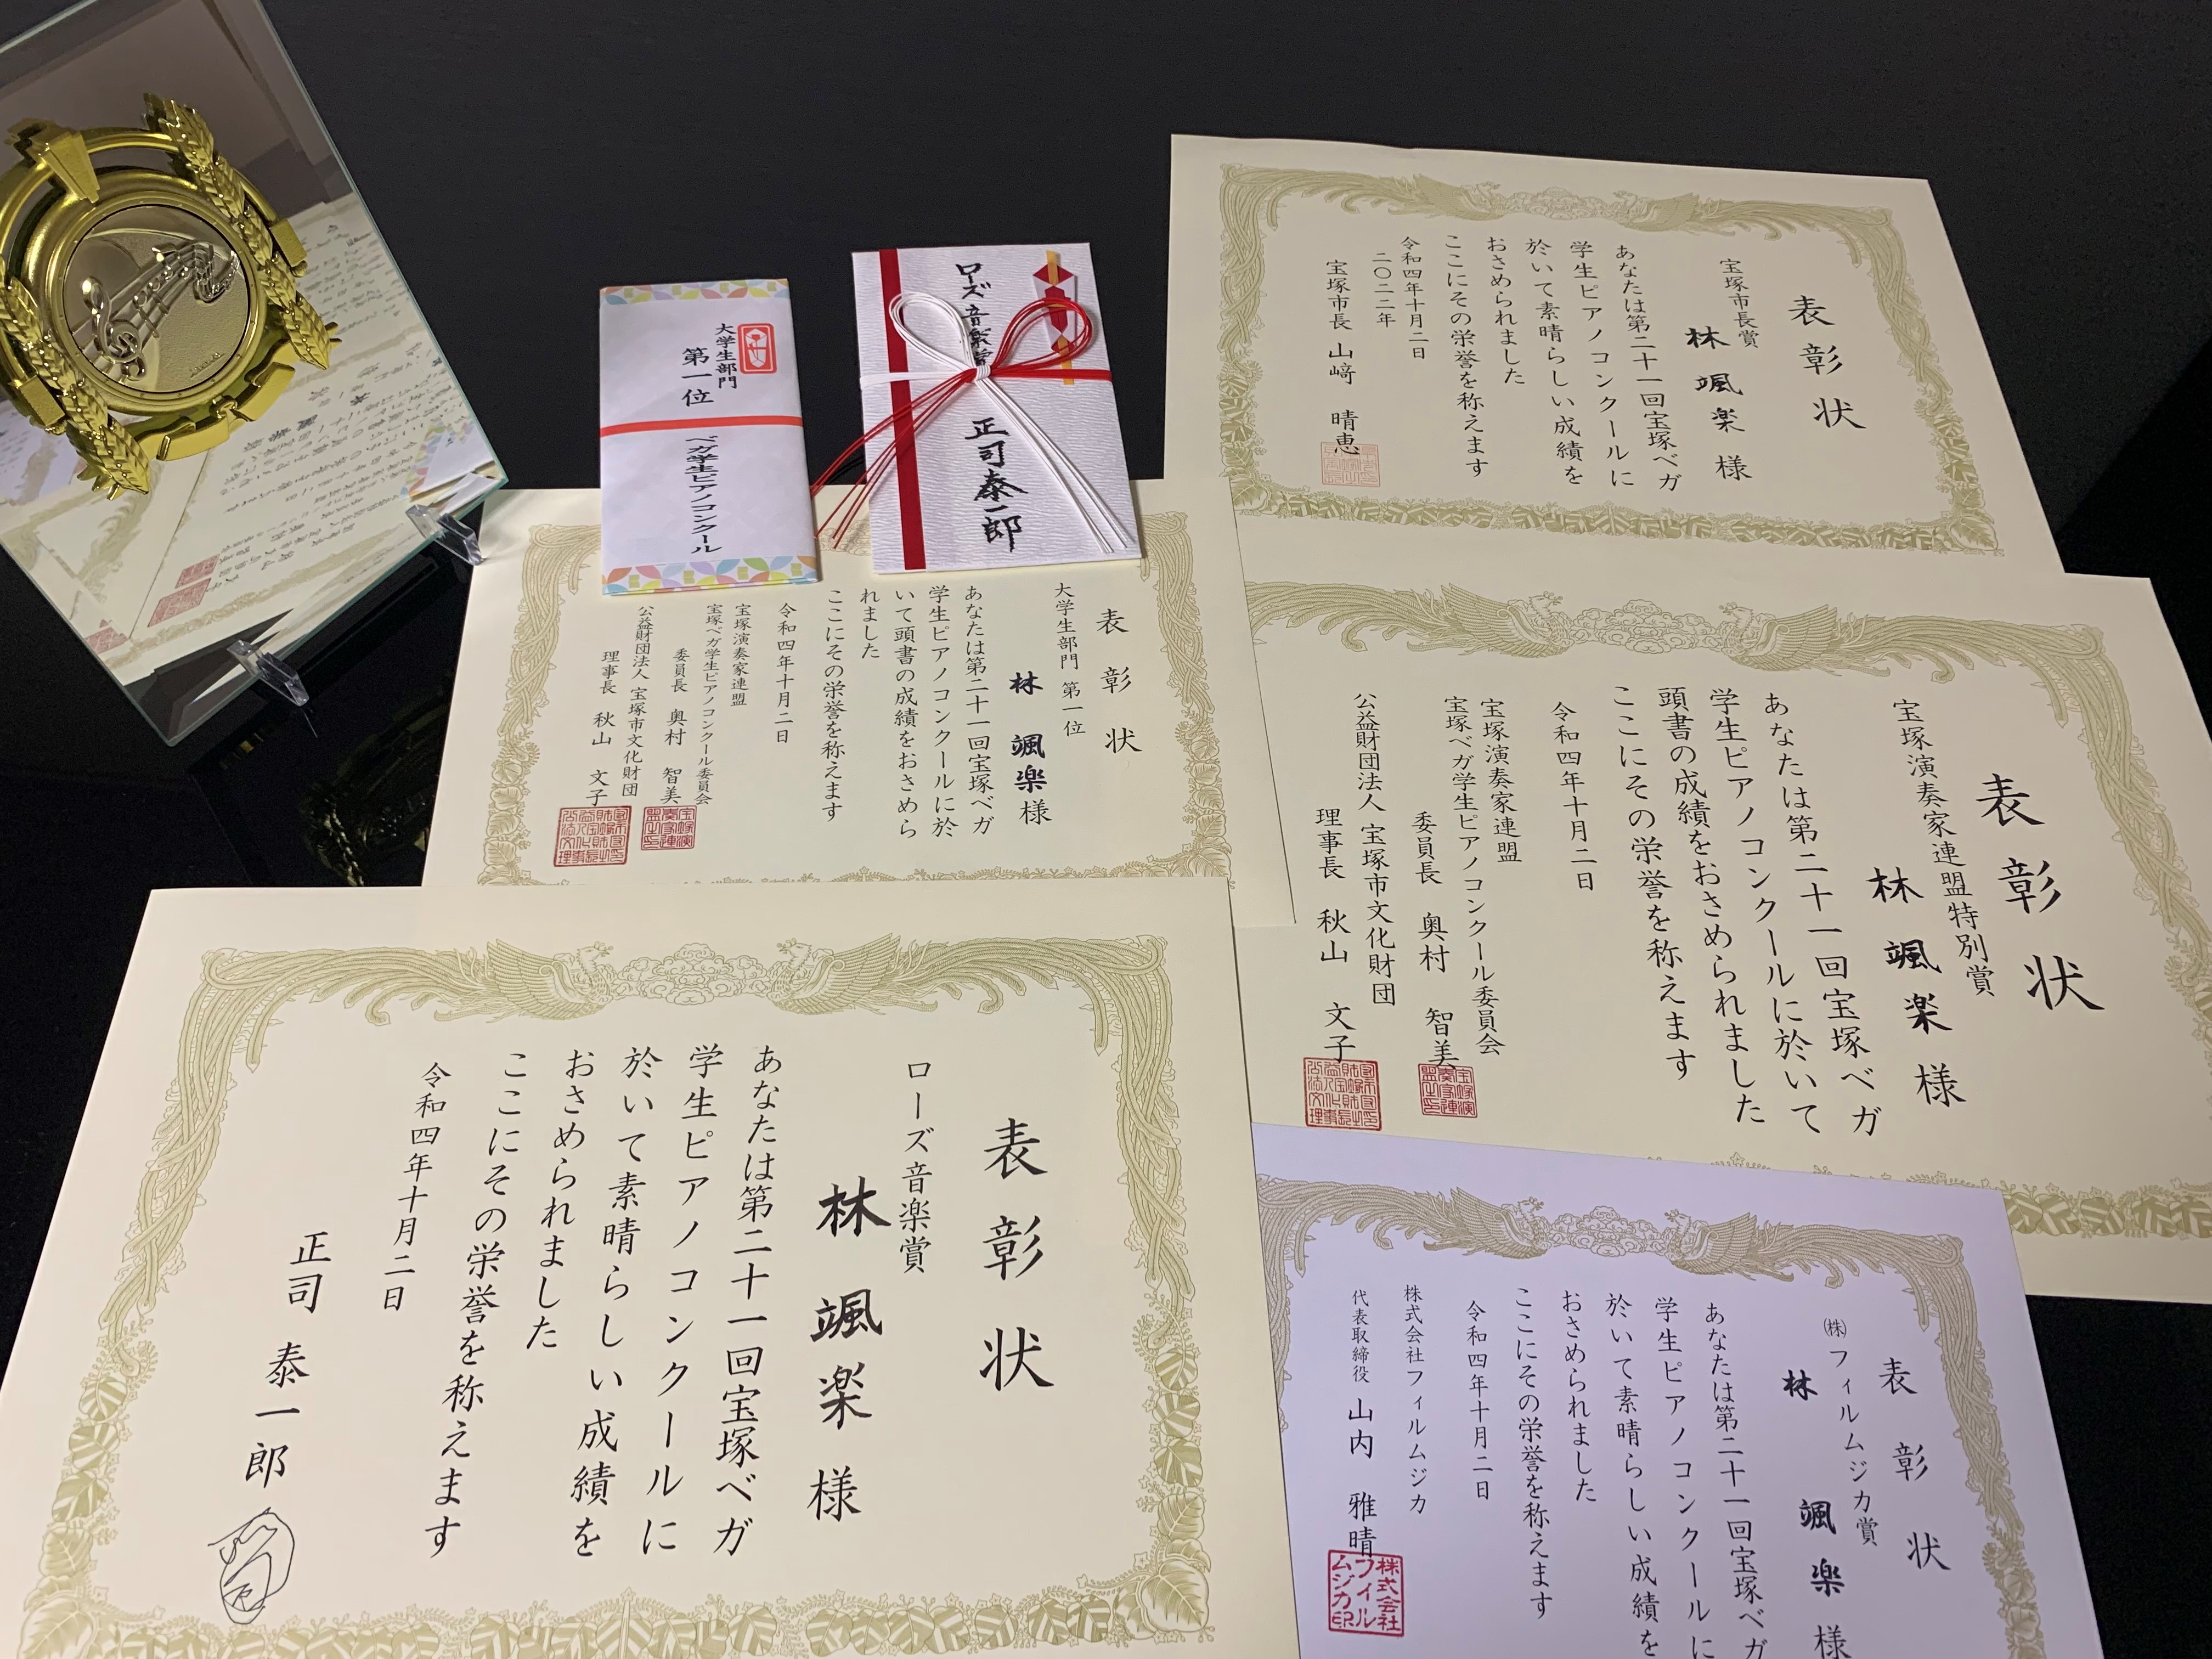 大学生部門
第一位
ベガ学生ピアノコンクール
ローズ音楽賞
正司泰一郎
表彰状
宝塚市長賞
林 颯楽 様
あなたは第二十一回宝塚ベガ
学生ピアノコンクールに
於いて素晴らしい成績を
おさめられました
ここにその栄誉を称えます
令和四年十月二日
二〇二二年
宝塚市長 山﨑 晴恵
表彰状
大学生部門 第一位
林 颯楽 様
あなたは第二十一回宝塚ベガ
学生ピアノコンクールに於
いて頭書の成績をおさめら
れました
ここにその栄誉を称えます
令和四年十月二日
宝塚演奏家連盟
宝塚ベガ学生ピアノコンクール委員会
委員長 奥村 智美
公益財団法人 宝塚市文化財団
理事長 秋山 文子
表彰状
宝塚演奏家連盟特別賞
林 颯楽 様
あなたは第二十一回宝塚ベガ
学生ピアノコンクールに於いて
頭書の成績をおさめられました
ここにその栄誉を称えます
令和四年十月二日
宝塚演奏家連盟
宝塚ベガ学生ピアノコンクール委員会
委員長 奥村 智美
公益財団法人 宝塚市文化財団
理事長 秋山 文子
表彰状
ローズ音楽賞
林 颯楽 様
あなたは第二十一回宝塚ベガ
学生ピアノコンクールに
於いて素晴らしい成績を
おさめられました
ここにその栄誉を称えます
令和四年十月二日
正司 泰一郎
表彰状
㈱フィルムジカ賞
林 颯楽 様
あなたは第二十一回宝塚ベガ
学生ピアノコンクールに
於いて素晴らしい成績を
おさめられました
ここにその栄誉を称えます
令和四年十月二日
株式会社フィルムジカ
代表取締役 山内 雅晴
株式会社
フィル
ムジカ印